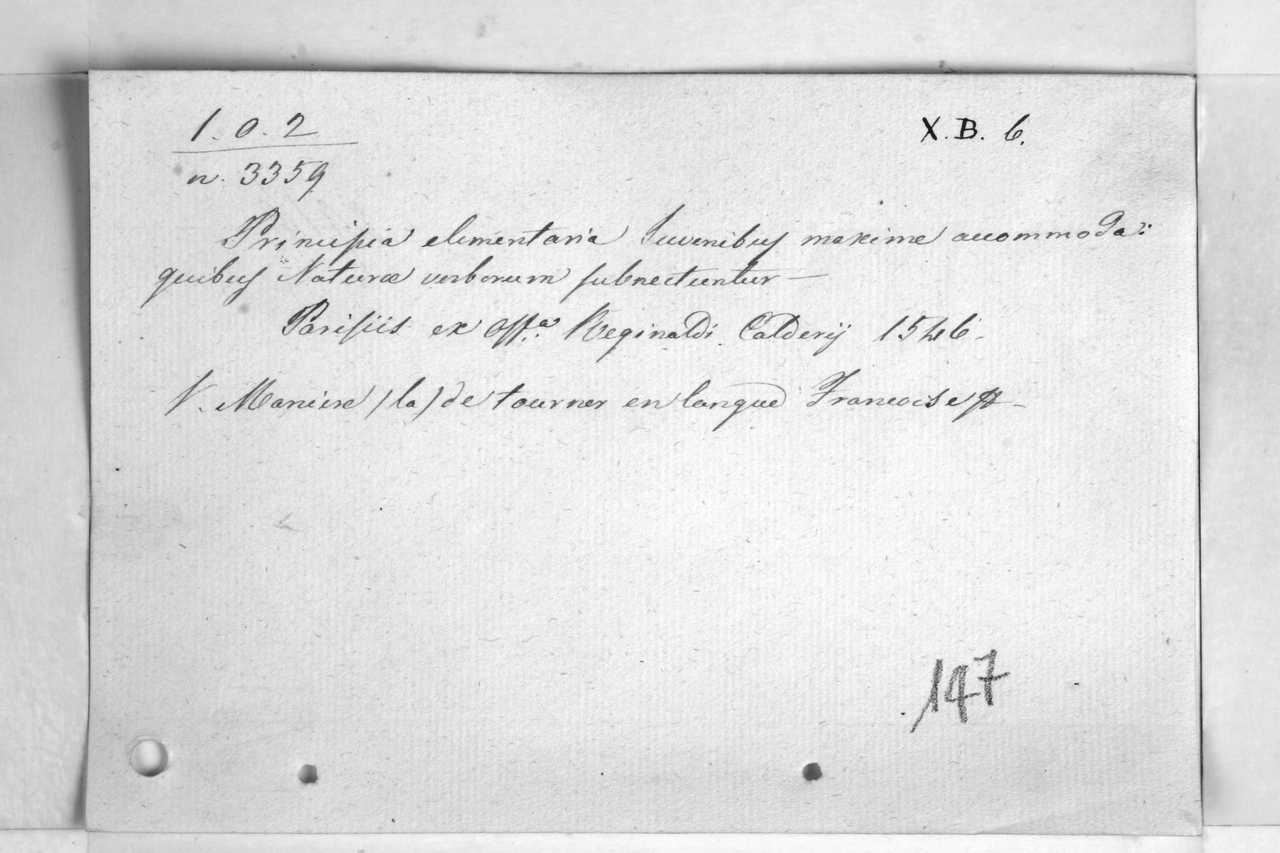 1. 0. 2
X. B. 6.
n. 3359
Principia elementaria Iuvenibus maxime accommoda:
quibus Naturæ verborum subnectuntur
Parisiis ex Off.ª Reginaldi Calderij 1546.
V. Maniere (la) de tourner en langue Francoise &
147